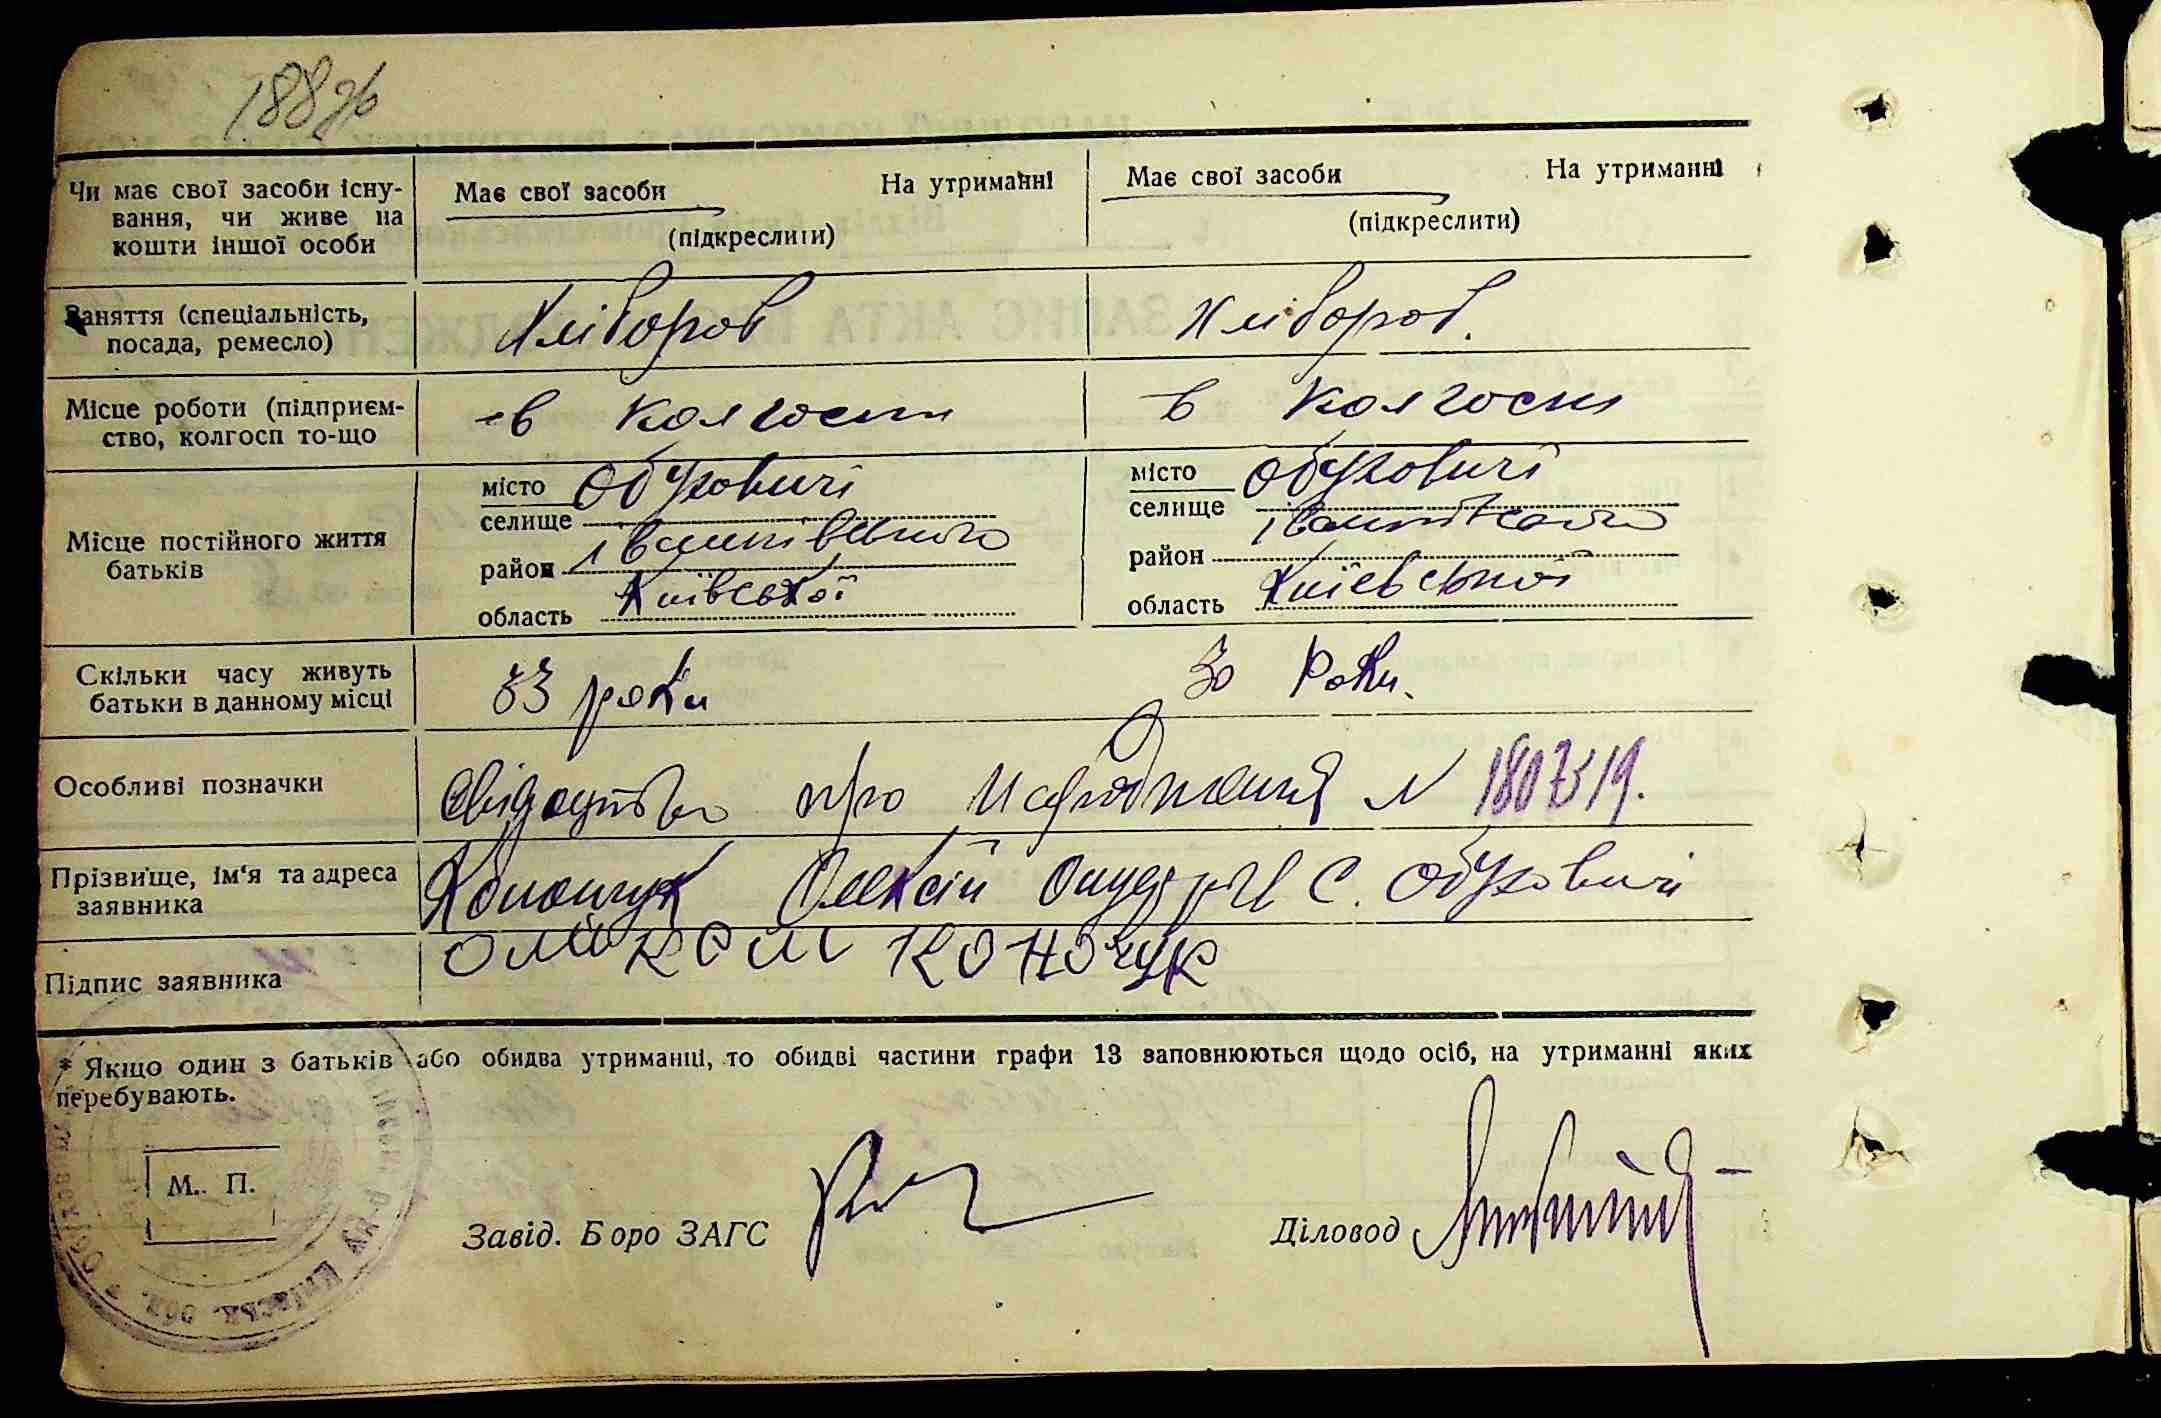 188зв
Чи має свої засоби існу-
вання, чи живе на
кошти іншої особи
Має свої засоби На утриманні
(підкреслити)
Має свої засоби На утриманні
(підкреслити)
Заняття (спеціальність,
посада, ремесло)
Хлібороб
Хлібороб.
Місце роботи (підприєм-
ство, колгосп то-що
в колгоспі
в колгоспі
Місце постійного життя
батьків
місто Обуховичі
селище
район Іванківського
область Київської
місто Обуховичі
селище
район Іванківського
область Київської
Скільки часу живуть
батьки в данному місці
33 роки
30 Роки.
Особливі позначки
Свідоцтво про Народження N
Прізвище, ім'я та адреса
заявника
Конончук Олексій С. Обуховичі
Підпис заявника
Конончук
* Якщо один з батьків або обидва утриманці, то обидві частини графи 13 заповнюються щодо осіб, на утриманні яких
перебувають.
М. П.
Завід. Бюро ЗАГС
Діловод